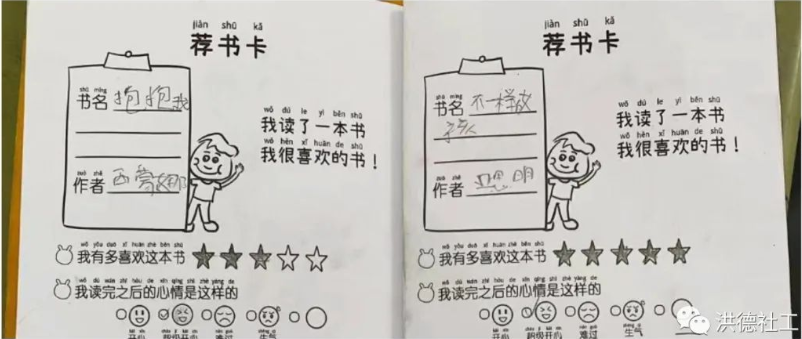 jiàn shū kǎ
荐书卡
shū míng
书名 抱抱我
wǒ dú le yì běn shū
我读了一本书
wǒ hěn xǐ huān de shū
我很喜欢的书！
zuò zhě
作者 西蒙娜
wǒ yǒu duō xǐ huān zhè běn shū
我有多喜欢这本书
wǒ dú wán zhī hòu de xīn qíng shì zhè yàng de
我读完之后的心情是这样的
开心 超级开心 难过 生气
jiàn shū kǎ
荐书卡
shū míng
书名 不一样的
wǒ dú le yì běn shū
我读了一本书
wǒ hěn xǐ huān de shū
我很喜欢的书！
zuò zhě
作者 思明
wǒ yǒu duō xǐ huān zhè běn shū
我有多喜欢这本书
wǒ dú wán zhī hòu de xīn qíng shì zhè yàng de
我读完之后的心情是这样的
开心 超级开心 难过 生气
洪德社工